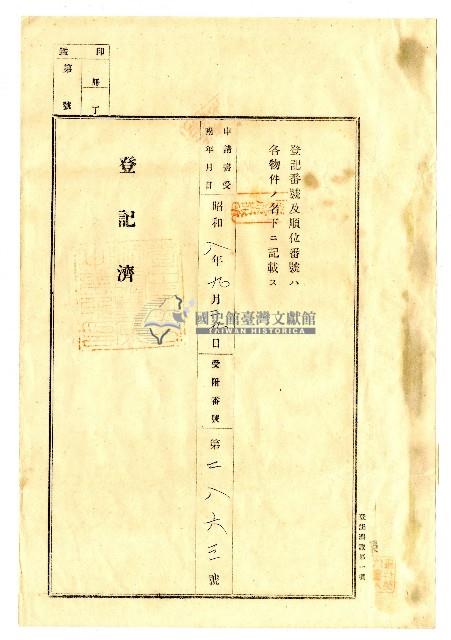 印鑑
第 號
册
丁
登記番號及順位番號ハ
各物件ノ名下ニ記載ス
申請書受
昭和八年九月 日
受附番號
第二八六三號
登記濟
國史館臺灣文獻館
TAIWAN HISTORICA